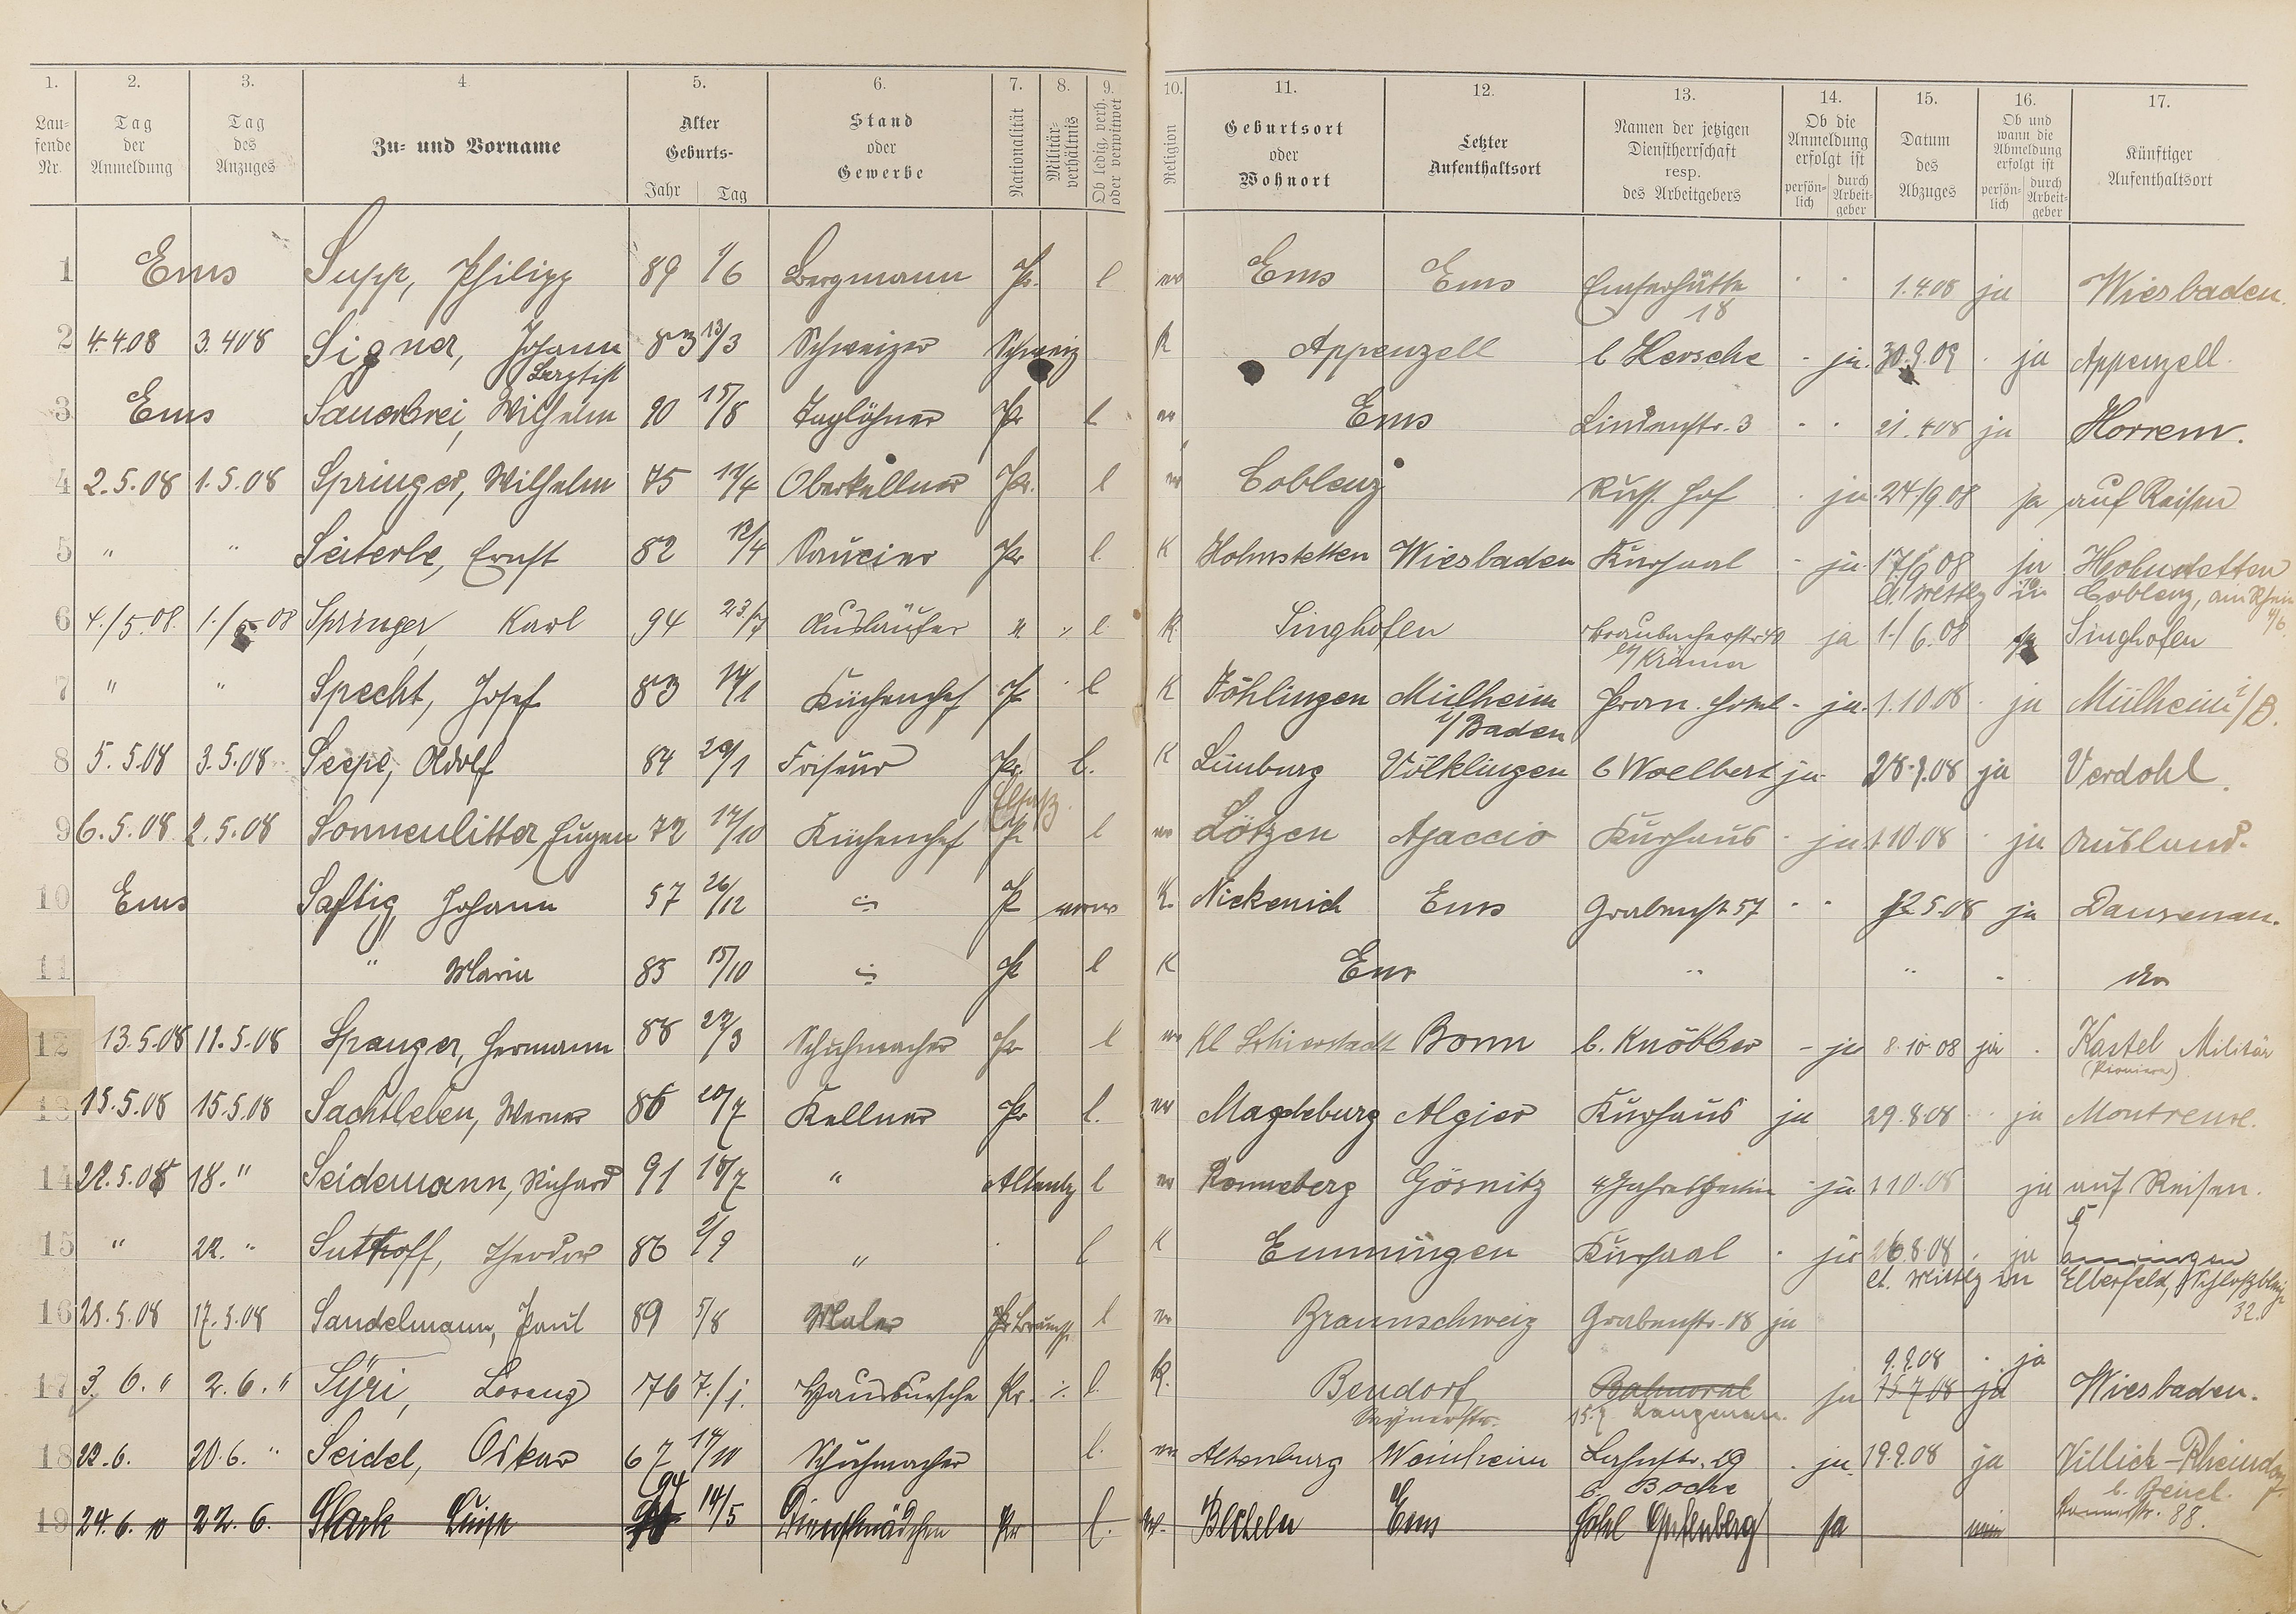 1. 2. 3. 4 5. 6. 7. 8. 9. 10. 11. 12. 13. 14. 15. 16. 17.
Lau-
fende
Nr.
Tag
der
Anmeldung
Tag
des
Anzuges
Zu- und Vorname
Alter
Geburts-
Jahr Tag
Stand
oder
Gewerbe
Nationalität
Militär-
verhältnis
Ob ledig, verh.
oder verwitwet
Religion
Geburtsort
oder
Wohnort
Letzter
Aufenthaltsort
Namen der jetzigen
Dienstherrschaft
resp.
des Arbeitgebers
Ob die
Anmeldung
erfolgt ist
persön-
lich
durch
Arbeit-
geber
Datum
des
Abzuges
Ob und
wann die
Abmeldung
erfolgt ist
persön-
lich
durch
Arbeit-
geber
Künftiger
Aufenthaltsort
1 Ems Supp, Philipp 89 1/6 Bergmann Pr. l ev Ems Ems Emserhütte 1.4.08 ja Wiesbaden.
18
2 4.4.08 3.4.08 Signer, Johann 83 13/3 Schweizer Schweiz K Appenzell b Hersche - ja. 30.9.09 ja Appenzell.
Baptist
3 Ems Sauerbrei, Wilhelm 90 15/8 Taglöhner Pr l ev Ems Lindenstr. 3 21.4.08 ja Horrem.
4 2.5.08 1.5.08 Springer, Wilhelm 75 19/4 Oberkellner Pr. l ev Coblenz Russ. Hof ja 24/9.08 ja auf Reisen
5 " " Seiterle, Ernst 82 12/4 Saucier Pr l. K Hohnstetten Wiesbaden Kursaal - ja 17/6 08 ja Hohnstetten
lt. Mittlg in Coblenz, am Rhein
4/6
6 4./5.08. 1./5 08 Springer, Karl 94 23./7 Ausläufer " ./. l K. Singhofen Braubacherstr 40 ja 1./6.08 ja Singhofen
b/ Krämer
7 " " Specht, Josef 83 14/1 Küchenchef Pr l K Föhlingen Mülheim Pran. Hotel - ja. 1.10.08 ja Mülheim i/B.
i/Baden
8 5.5.08 3.5.08 Seepe, Adolf 84 29/1 Friseur Pr. l. K Limburg Völklingen b Woelbert ja 28.9.08 ja Verdohl.
Elsaß
9 6.5.08 2.5.08 Sonnenlitter, Eugen 72 14/10 Küchenchef Pr l ev Lötzen Ajaccio Kurhaus ja 1.10.08 ja Ausland.
10 Ems Saftig, Johann 57 26/12 Pr verw K. Nickenich Ems Grabenstr 57 12 5.08 ja Dausenau.
11 " Maria 85 15/10 Pr l K Ems " " " do
12 13.5.08 11.5.08 Spanger, Hermann 88 22/3 Schuhmacher Pr l ev Kl Schierstadt Bonn b. Knöbber - ja 8.10.08 ja Kastel Militär
(Pioniere)
13 15.5.08 15.5.08 Sachtleben, Werner 86 20/7 Kellner Pr l. ev Magdeburg Algier Kurhaus ja 29.8.08 ja Montreux.
14 22.5.08 18. " Seidemann, Richard 91 18/7 " Altenbg l ev Ronneberg Gösnitz 4 Jahreszeiten - ja 1.10.08 ja auf Reisen.
15 " 22. " Suthoff, Theodor 86 2/9 " l K Emmingen Kursaal ja 26.8.08 ja Emmingen
lt. Mittlg in Elberfeld, Schloßbleiche
32.
16 25.5.08 17.5.08 Sandelmann, Paul 89 5/8 Maler Braunsch. l ev Braunschweig Grabenstr. 18 ja
9.9.08 ja
17 3. 6. " 2. 6. " Syri, Lorenz 76 7./1. Hausbursche Pr. ./. l. K. Bendorf Balmoral ja 15.7.08 ja Wiesbaden.
Saynerstr. 15.7
18 22.6. 20.6. " Seidel, Oskar 67 14/10 Schuhmacher l. ev Altenburg Weinheim Lahnstr. 29 ja 19.9.08 ja Villich-Rheindorf
b. Boche b. Beuel.
94
19 24.6. " 22. 6. Stark Luise 14/5 Dienstmädchen Pr l. ev. Becheln Ems Hotel Gutenberg ja nein 88.